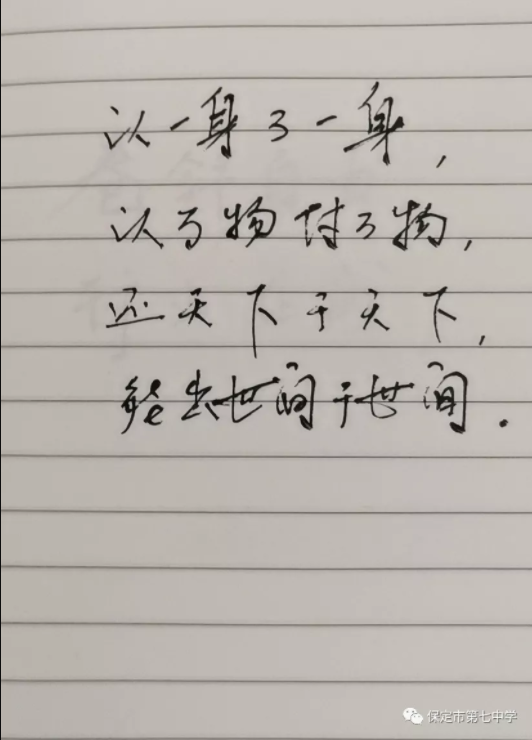 以一身了一身,
以万物付万物,
还天下于天下,
能出世间于世间.
保定市第七中学